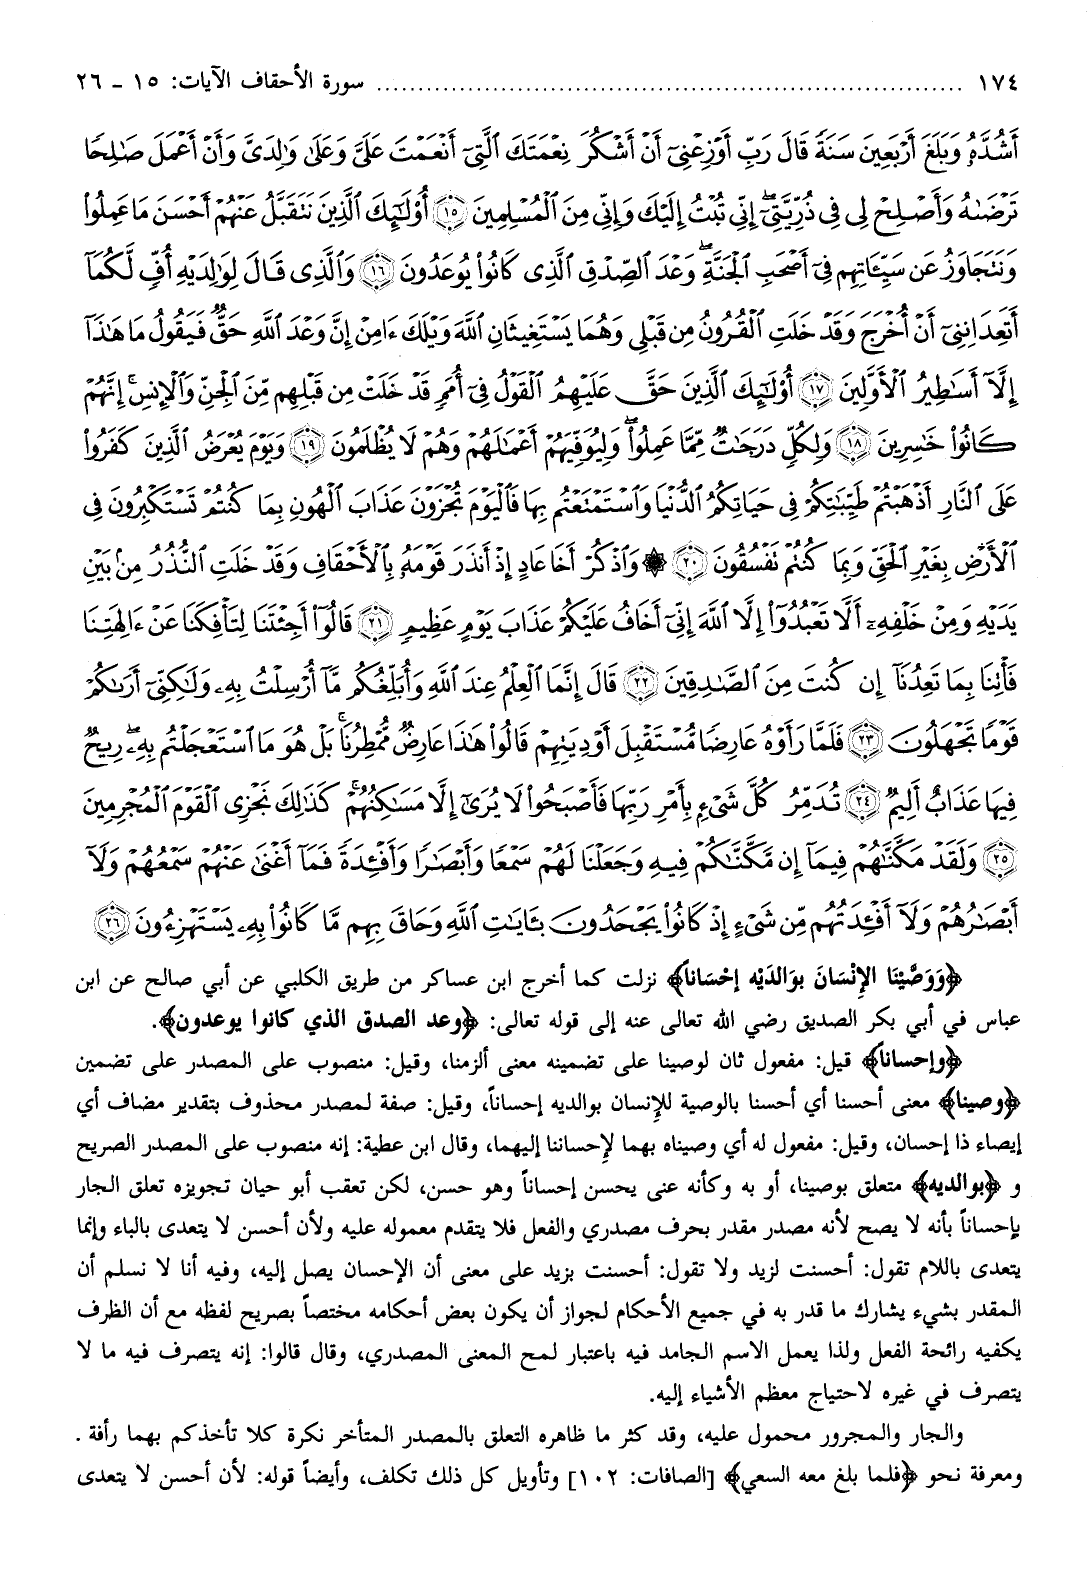 ١٧٤ ........................................ سورة الأحقاف الآيات: ١٥ ـ ٢٦
أَشُدَّهُۥ وَبَلَغَ أَرْبَعِينَ سَنَةً قَالَ رَبِّ أَوْزِعْنِىٓ أَنْ أَشْكُرَ نِعْمَتَكَ ٱلَّتِىٓ أَنْعَمْتَ عَلَىَّ وَعَلَىٰ وَٰلِدَىَّ وَأَنْ أَعْمَلَ صَٰلِحًا
تَرْضَىٰهُ وَأَصْلِحْ لِى فِى ذُرِّيَّتِىٓ ۖ إِنِّى تُبْتُ إِلَيْكَ وَإِنِّى مِنَ ٱلْمُسْلِمِينَ ١٥ أُو۟لَٰٓئِكَ ٱلَّذِينَ نَتَقَبَّلُ عَنْهُمْ أَحْسَنَ مَا عَمِلُوا۟
وَنَتَجَاوَزُ عَن سَيِّـَٔاتِهِمْ فِىٓ أَصْحَٰبِ ٱلْجَنَّةِ ۖ وَعْدَ ٱلصِّدْقِ ٱلَّذِى كَانُوا۟ يُوعَدُونَ ١٦ وَٱلَّذِى قَالَ لِوَٰلِدَيْهِ أُفٍّ لَّكُمَآ
أَتَعِدَانِنِىٓ أَنْ أُخْرَجَ وَقَدْ خَلَتِ ٱلْقُرُونُ مِن قَبْلِى وَهُمَا يَسْتَغِيثَانِ ٱللَّهَ وَيْلَكَ ءَامِنْ إِنَّ وَعْدَ ٱللَّهِ حَقٌّ فَيَقُولُ مَا هَٰذَآ
إِلَّآ أَسَٰطِيرُ ٱلْأَوَّلِينَ ١٧ أُو۟لَٰٓئِكَ ٱلَّذِينَ حَقَّ عَلَيْهِمُ ٱلْقَوْلُ فِىٓ أُمَمٍ قَدْ خَلَتْ مِن قَبْلِهِم مِّنَ ٱلْجِنِّ وَٱلْإِنسِ ۖ إِنَّهُمْ
كَانُوا۟ خَٰسِرِينَ ١٨ وَلِكُلٍّ دَرَجَٰتٌ مِّمَّا عَمِلُوا۟ ۖ وَلِيُوَفِّيَهُمْ أَعْمَٰلَهُمْ وَهُمْ لَا يُظْلَمُونَ ١٩ وَيَوْمَ يُعْرَضُ ٱلَّذِينَ كَفَرُوا۟
عَلَى ٱلنَّارِ أَذْهَبْتُمْ طَيِّبَٰتِكُمْ فِى حَيَاتِكُمُ ٱلدُّنْيَا وَٱسْتَمْتَعْتُم بِهَا فَٱلْيَوْمَ تُجْزَوْنَ عَذَابَ ٱلْهُونِ بِمَا كُنتُمْ تَسْتَكْبِرُونَ فِى
ٱلْأَرْضِ بِغَيْرِ ٱلْحَقِّ وَبِمَا كُنتُمْ تَفْسُقُونَ ٢٠ ۞ وَٱذْكُرْ أَخَا عَادٍ إِذْ أَنذَرَ قَوْمَهُۥ بِٱلْأَحْقَافِ وَقَدْ خَلَتِ ٱلنُّذُرُ مِنۢ بَيْنِ
يَدَيْهِ وَمِنْ خَلْفِهِۦٓ أَلَّا تَعْبُدُوٓا۟ إِلَّا ٱللَّهَ إِنِّىٓ أَخَافُ عَلَيْكُمْ عَذَابَ يَوْمٍ عَظِيمٍ ٢١ قَالُوٓا۟ أَجِئْتَنَا لِتَأْفِكَنَا عَنْ ءَالِهَتِنَا
فَأْتِنَا بِمَا تَعِدُنَآ إِن كُنتَ مِنَ ٱلصَّٰدِقِينَ ٢٢ قَالَ إِنَّمَا ٱلْعِلْمُ عِندَ ٱللَّهِ وَأُبَلِّغُكُم مَّآ أُرْسِلْتُ بِهِۦ وَلَٰكِنِّىٓ أَرَىٰكُمْ
قَوْمًا تَجْهَلُونَ ٢٣ فَلَمَّا رَأَوْهُ عَارِضًا مُّسْتَقْبِلَ أَوْدِيَتِهِمْ قَالُوا۟ هَٰذَا عَارِضٌ مُّمْطِرُنَا ۚ بَلْ هُوَ مَا ٱسْتَعْجَلْتُم بِهِۦ ۖ رِيحٌ
فِيهَا عَذَابٌ أَلِيمٌ ٢٤ تُدَمِّرُ كُلَّ شَىْءٍۭ بِأَمْرِ رَبِّهَا فَأَصْبَحُوا۟ لَا يُرَىٰٓ إِلَّا مَسَٰكِنُهُمْ ۚ كَذَٰلِكَ نَجْزِى ٱلْقَوْمَ ٱلْمُجْرِمِينَ
٢٥ وَلَقَدْ مَكَّنَّٰهُمْ فِيمَآ إِن مَّكَّنَّٰكُمْ فِيهِ وَجَعَلْنَا لَهُمْ سَمْعًا وَأَبْصَٰرًا وَأَفْـِٔدَةً فَمَآ أَغْنَىٰ عَنْهُمْ سَمْعُهُمْ وَلَآ
أَبْصَٰرُهُمْ وَلَآ أَفْـِٔدَتُهُم مِّن شَىْءٍ إِذْ كَانُوا۟ يَجْحَدُونَ بِـَٔايَٰتِ ٱللَّهِ وَحَاقَ بِهِم مَّا كَانُوا۟ بِهِۦ يَسْتَهْزِءُونَ ٢٦
﴿وَوَصَّيْنَا الإِنْسَانَ بِوَالدَيْه إحْسَاناً﴾ نزلت كما أخرج ابن عساكر من طريق الكلبي عن أبي صالح عن ابن
عباس في أبي بكر الصديق رضي الله تعالى عنه إلى قوله تعالى: ﴿وعد الصدق الذي كانوا يوعدون﴾.
﴿وإحساناً﴾ قيل: مفعول ثان لوصينا على تضمينه معنى ألزمنا، وقيل: منصوب على المصدر على تضمين
﴿وصينا﴾ معنى أحسنا أي أحسنا بالوصية للإِنسان بوالديه إحساناً، وقيل: صفة لمصدر محذوف بتقدير مضاف أي
إيصاء ذا إحسان، وقيل: مفعول له أي وصيناه بهما لإِحساننا إليهما، وقال ابن عطية: إنه منصوب على المصدر الصريح
و ﴿بوالديه﴾ متعلق بوصينا، أو به وكأنه عنى يحسن إحساناً وهو حسن، لكن تعقب أبو حيان تجويزه تعلق الجار
بإحساناً بأنه لا يصح لأنه مصدر مقدر بحرف مصدري والفعل فلا يتقدم معموله عليه ولأن أحسن لا يتعدى بالباء وإنما
يتعدى باللام تقول: أحسنت لزيد ولا تقول: أحسنت بزيد على معنى أن الإحسان يصل إليه، وفيه أنا لا نسلم أن
المقدر بشيء يشارك ما قدر به في جميع الأحكام لجواز أن يكون بعض أحكامه مختصاً بصريح لفظه مع أن الظرف
يكفيه رائحة الفعل ولذا يعمل الاسم الجامد فيه باعتبار لمح المعنى المصدري، وقال قالوا: إنه يتصرف فيه ما لا
يتصرف في غيره لاحتياج معظم الأشياء إليه.
والجار والمجرور محمول عليه، وقد كثر ما ظاهره التعلق بالمصدر المتأخر نكرة كلا تأخذكم بهما رأفة .
ومعرفة نحو ﴿فلما بلغ معه السعي﴾ [الصافات: ١٠٢] وتأويل كل ذلك تكلف، وأيضاً قوله: لأن أحسن لا يتعدى